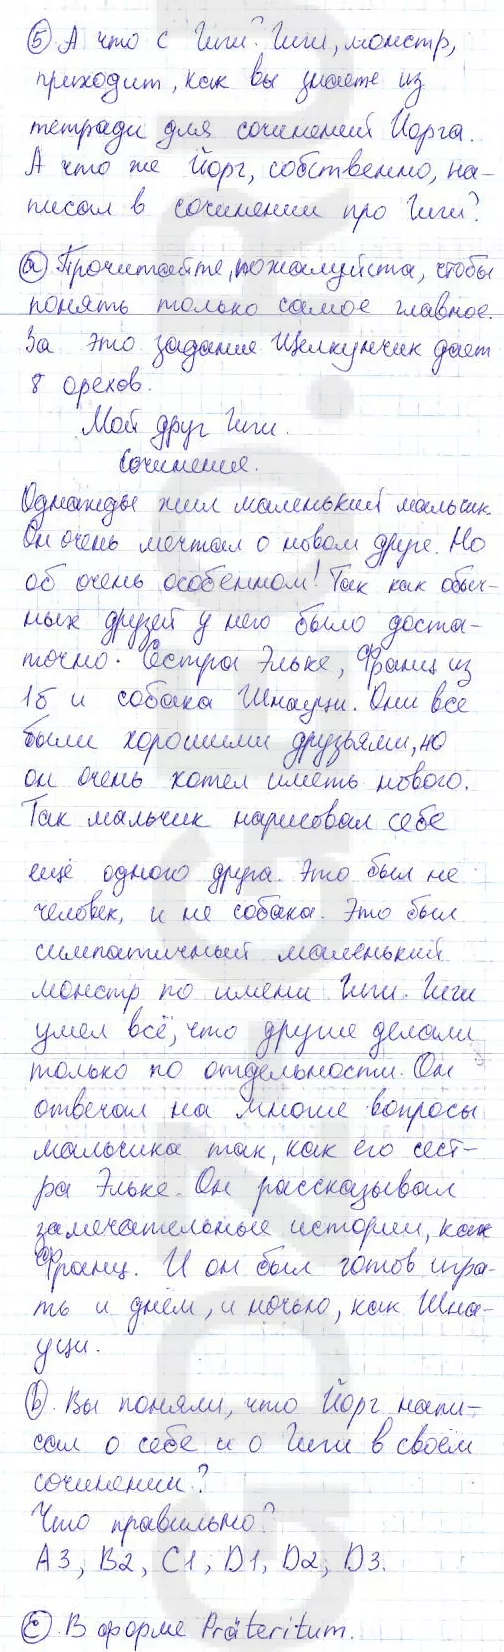 ⑤ А что с Гиги? Гиги, монстр,
приходит, как вы знаете из
тетради для сочинений Йорга.
А что же Йорг, собственно, на-
писал в сочинении про Гиги?
ⓐ Прочитайте, пожалуйста, чтобы
понять только самое главное.
За это задание Щелкунчик дает
8 орехов.
Мой друг Гиги.
Сочинение.
Однажды жил маленький мальчик.
Он очень мечтал о новом друге. Но
об очень особенном! Так как обыч-
ных друзей у него было доста-
точно. Сестра Эльке, Франц из
1б и собака Шнауци. Они все
были хорошими друзьями, но
он очень хотел иметь нового.
Так мальчик нарисовал себе
ещё одного друга. Это был не
человек, и не собака. Это был
симпатичный маленький
монстр по имени Гиги. Гиги
умел всё, что другие делали
только по отдельности. Он
отвечал на многие вопросы
мальчика так, как его сест-
ра Эльке. Он рассказывал
замечательные истории, как
Франц. И он был готов игра-
ть и днём, и ночью, как Шна-
уци.
ⓑ. Вы поняли, что Йорг напи-
сал о себе и о Гиги в своём
сочинении?
Что правильно?
A3, B2, C1, D1, D2, D3.
ⓒ. В форме Präteritum.